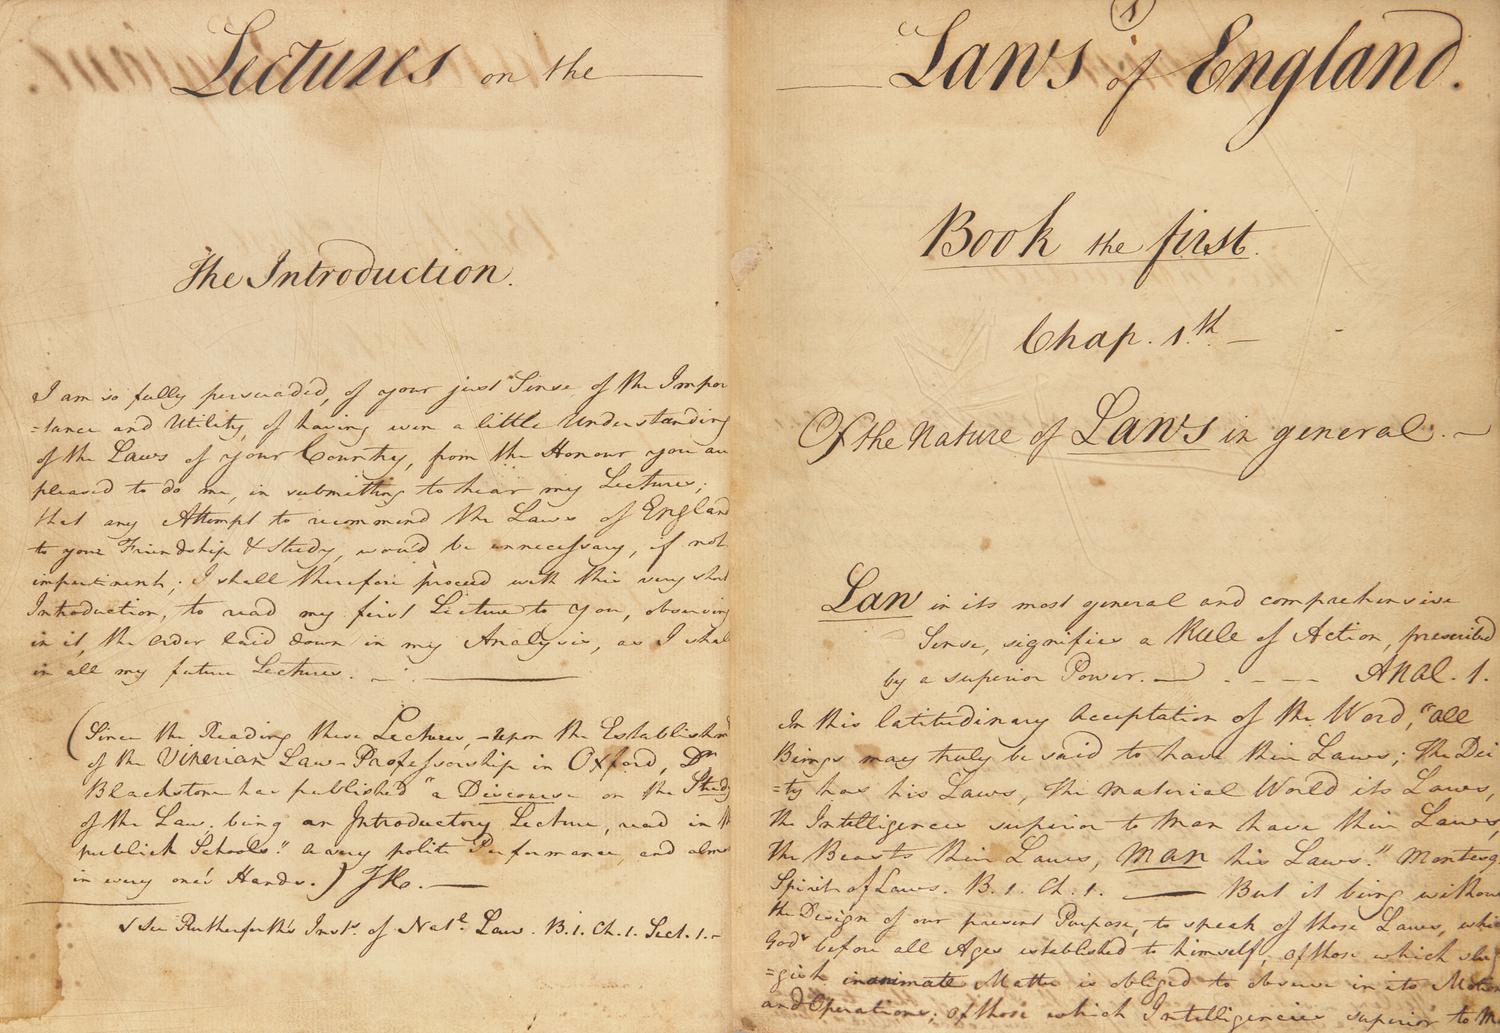 Lectures on the
The Introduction.
I am so fully persuaded, of your just Sense of the Impor
=tance and Utility, of having even a little Understanding
of the Laws of your Country, from the Honour you are
pleased to do me, in submitting to hear my Lectures;
that any Attempt to recommend the Laws of England
to your Friendship & Study, would be unnecessary, if not
impertinent; I shall therefore proceed with this very short
Introduction, to read my first Lecture to you, observing
in it, the order laid down in my Analysis, as I shall
in all my future Lectures.
(Since the Reading these Lectures, upon the Establishm
of the Vinerian Law-Professorship in Oxford, Dr.
Blackstone has published "a Discourse on the Study
of the Law; being an Introductory Lecture, read in the
publick Schools." a very polite Performance, and almo
in every one's Hands.)
See Rutherforth's Inst.s of Nat.l Law. B.1. Ch.1. Sect.1.
1
Laws of England.
Book the first.
Chap. 1th
Of the Nature of Laws in general.
Law in its most general and comprehensive
Sense, signifies a Rule of Action, prescribed
by a superior Power. Anal. 1.
In this latitudinary Acceptation of the Word, "all
Beings may truly be said to have their Laws; The Dei
=ty has his Laws, the material World its Laws,
the Intelligences superior to Man have their Laws,
the Beasts their Laws, Man his Laws." Montesq.
Spirit of Laws. B. 1. Ch. 1. But it being without
the Design of our present Purpose, to speak of those Laws, which
God before all Ages established to himself, of those which
inanimate Matter is obliged to observe in its Motion
and Operations; of those which Intelligences superior to M